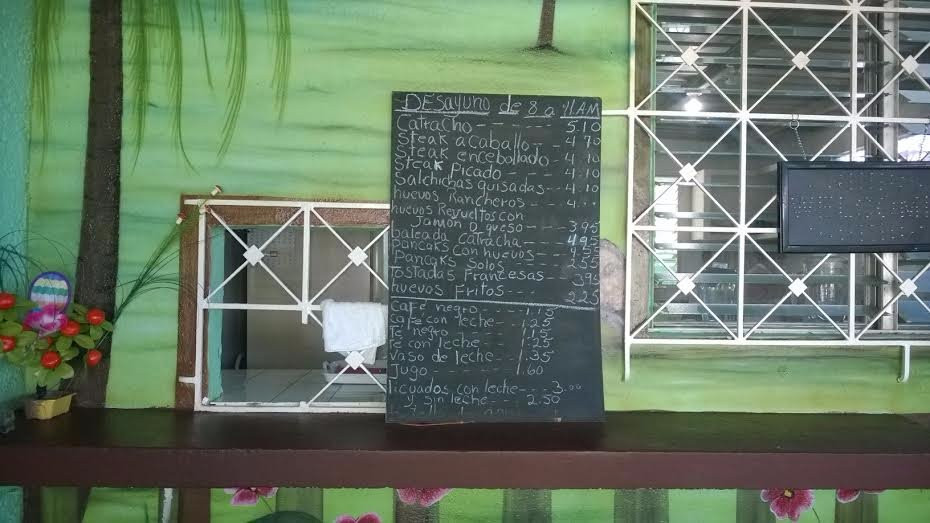 DESayuno de 8 a 11AM
Catracho - - - - - - - 5.10
Steak a caballo - - 4.70
Steak encebollado - 4.10
Steak Picado - - - 4.10
Salchichas guisadas - - 4.10
huevos Rancheros - - - 4.
huevos Revueltos con
Jamon o queso - - - 3.95
baleada catracha - - - - 4.95
pancaks con huevos - -
Pancaks Solos - - - - 2.55
tostadas Francesas 3.95
huevos Fritos - - - 2.25
café negro - - - - 1.15
café con leche - - 1.25
Te negro - - - - 1.15
Te con leche - - - 1.25
vaso de leche - - 1.35
Jugo - - - - - - - 1.60
licuados con leche - - - 3.00
y sin leche - - - 2.50